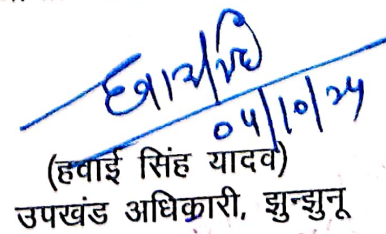 04/10/24
(हवाई सिंह यादव)
उपखंड अधिकारी, झुन्झुनू